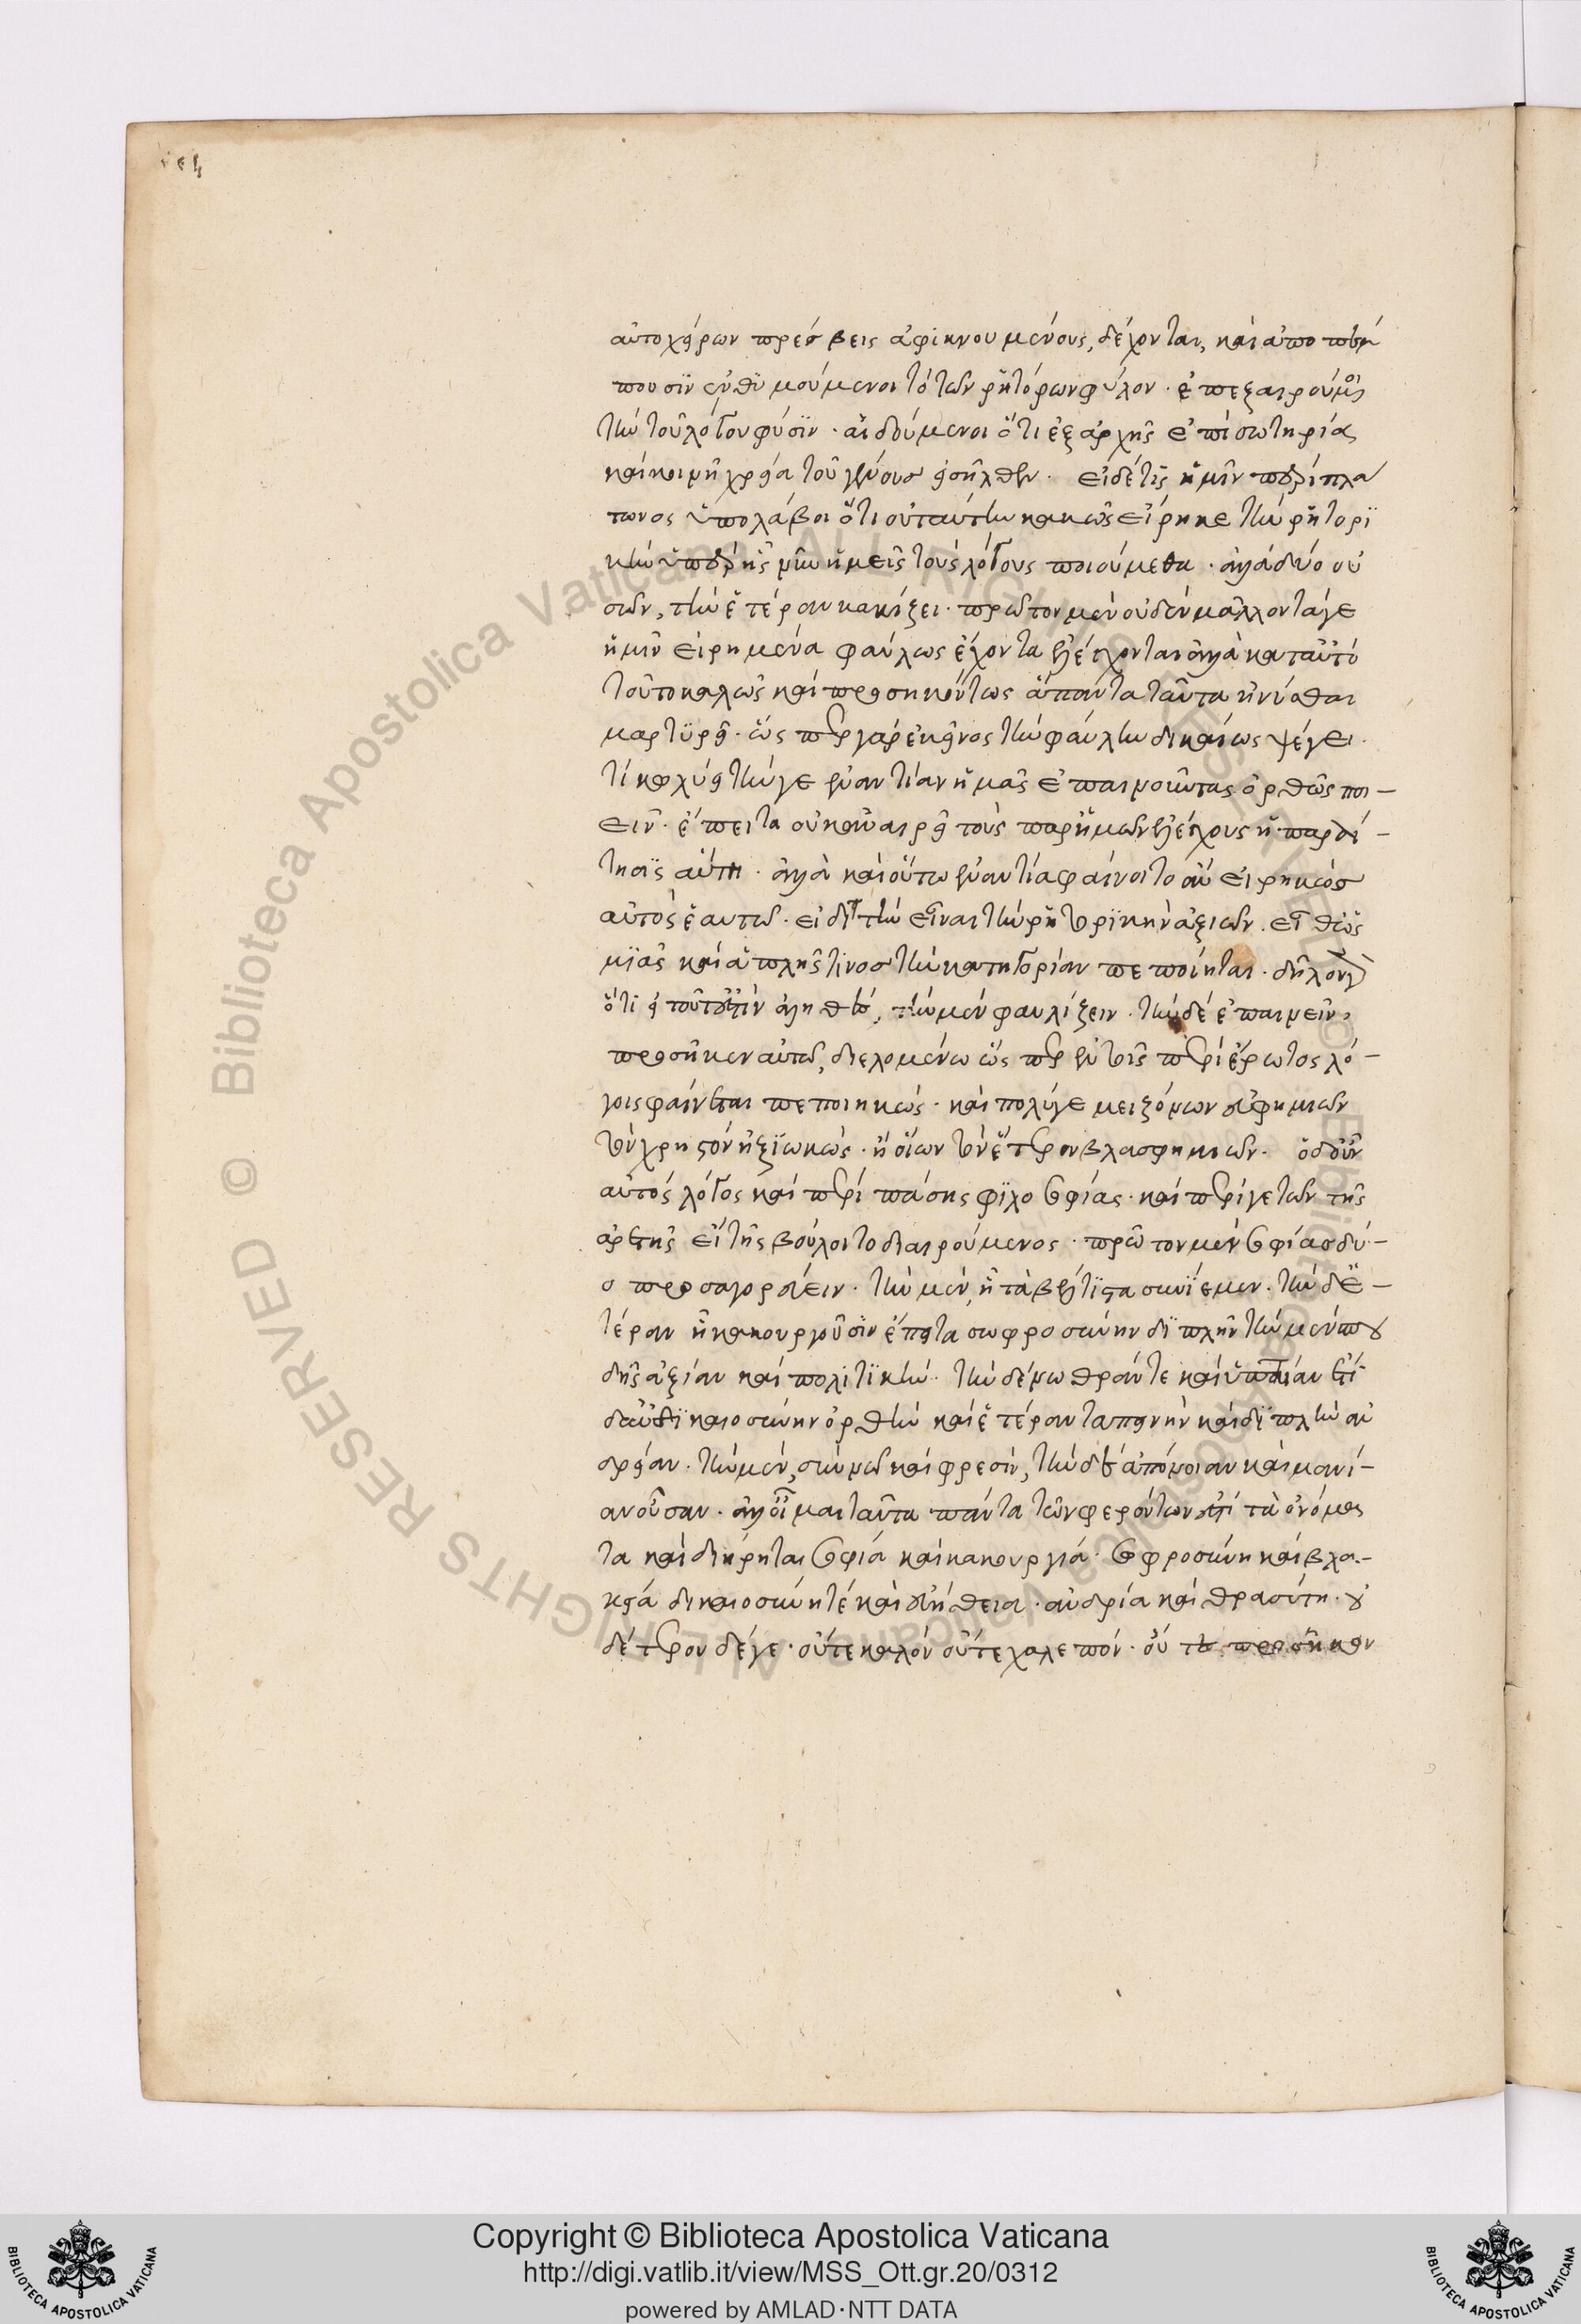 αὐτοχείρων πρέσβεις ἀφικνουμένους, δέχονται, καὶ ἀποπέμ
πουσιν ἐνθυμούμενοι τὸ τῶν ῥητόρων φῦλον. ἐπεξαιρούμενοι
τὴν τοῦ λόγου φύσιν. αἰδούμενοι ὅτι ἐξ ἀρχῆς ἐπὶ σωτηρίας
καὶ κοινῇ χρείᾳ τοῦ γένους εἰσῆλθεν. εἰ δέ τις ἡμῖν περὶ πλά
τωνος ὑπολάβοι ὅτι οὐ ταύτην κακῶς εἴρηκε τὴν ῥητορι
κὴν ὑπὲρ ἧς νῦν ἡμεῖς τοὺς λόγους ποιούμεθα. ἀλλὰ δύο οὐ
σῶν, τὴν ἑτέραν κακίζει. πρῶτον μὲν οὐδὲν μᾶλλον τά γε
ἡμῖν εἰρημένα φαύλως ἔχοντα ἐλέγχονται ἀλλὰ κατ' αὐτὸ
τοῦτο καλῶς καὶ προσηκόντως ἅπαντα ταῦτα ἠνύσθαι
μαρτυρεῖ. ὥσπερ γὰρ ἐκεῖνος τὴν φαύλην δικαίως ψέγει.
τί κωλύει τήν γε ἐναντίαν ἡμᾶς ἐπαινοῦντας ὀρθῶς ποι-
εῖν. ἔπειτα οὐκ ἀναιρεῖ τοὺς παρ' ἡμῶν ἐλέγχους ἡ παραί-
τησις αὕτη. ἀλλὰ καὶ οὕτω ἐναντία φαίνοιτο ἂν εἰρηκὼς
αὐτὸς ἑαυτῷ. εἰ δὴ τὴν εἶναι τὴν ῥητορικὴν ἀξιῶν. εἶθ' ὡς
μιᾶς καὶ ἁπλῆς τινος τὴν κατηγορίαν πεποίηται. δηλονότι
ὅτι εἰ τοῦτό ἐστιν ἀληθὲς, τὴν μὲν φαυλίζειν. τὴν δὲ ἐπαινεῖν,
προσῆκεν αὐτῷ, διελομένῳ ὥσπερ ἐν τοῖς περὶ ἔρωτος λό-
γοις φαίνεται πεποιηκώς. καὶ πολύ γε μειζόνων εὐφημιῶν
τὸν χρηστὸν ἠξιωκὼς. ἢ οἵων τὸν ἕτερον βλασφημιῶν. ὁ δ' οὖν
αὐτὸς λόγος καὶ περὶ πάσης φιλοσοφίας. καὶ περί γε τῶν τῆς
ἀρετῆς εἴ τις βούλοιτο διαιρούμενος. πρῶτον μὲν σοφίας δύ-
ο προσαγορεύειν. τὴν μὲν, ᾗ τὰ βέλτιστα συνίεμεν. τὴν δὲ ἑ-
τέραν ᾗ κακουργοῦσιν ἔπειτα σωφροσύνην διπλῆν τὴν μὲν σπου
δῆς ἀξίαν καὶ πολιτικὴν. τὴν δὲ νωθράν τε καὶ ὑπτίαν ἔτι
δ' αὖ δικαιοσύνην ὀρθὴν καὶ ἑτέραν ταπεινὴν καὶ διπλὴν ἀν
δρείαν. τὴν μὲν, σὺν νῷ καὶ φρεσὶν, τὴν δὲ ἀπόνοιαν καὶ μανί-
αν οὖσαν. ἀλλ' οἶμαι ταῦτα πάντα τῶν φερόντων ἐστὶ τὰ ὀνόμα
τα καὶ διῄρηται σοφία καὶ κακουργία. σωφροσύνη καὶ βλα-
κεία δικαιοσύνη τὲ καὶ εὐήθεια. ἀνδρία καὶ θρασύτη. οὐ
δέτερον δέ γε. οὔτε καλὸν οὔτε χαλεπόν. οὔτε προσῆκεν